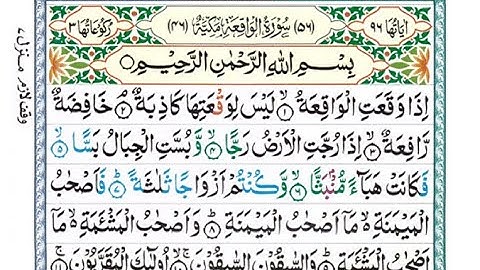 اٰيَاتُهَا ٩٦ (٥٦) سُوْرَةُ الْوَاقِعَةِ مَكِّيَّةٌ (٤٦) رُكُوْعَاتُهَا ٣
بِسْمِ اللّٰهِ الرَّحْمٰنِ الرَّحِيْمِ
اِذَا وَقَعَتِ الْوَاقِعَةُ ۝١ لَيْسَ لِوَقْعَتِهَا كَاذِبَةٌ ۝٢ خَافِضَةٌ
رَّافِعَةٌ ۝٣ اِذَا رُجَّتِ الْاَرْضُ رَجًّا ۝٤ وَّ بُسَّتِ الْجِبَالُ بَسًّا ۝٥
فَكَانَتْ هَبَآءً مُّنْۢبَثًّا ۝٦ وَّ كُنْتُمْ اَزْوَاجًا ثَلٰثَةً ۝٧ فَاَصْحٰبُ
الْمَيْمَنَةِ مَاۤ اَصْحٰبُ الْمَيْمَنَةِ ۝٨ وَ اَصْحٰبُ الْمَشْـَٔمَةِ مَاۤ
اَصْحٰبُ الْمَشْـَٔمَةِ ۝٩ وَ السّٰبِقُوْنَ السّٰبِقُوْنَ ۝١٠ اُولٰٓىِٕكَ الْمُقَرَّبُوْنَ ۝١١
وقف لازم
منزل ٧